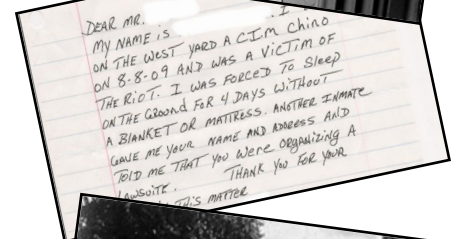 DEAR MR.
MY NAME IS I
ON THE WEST YARD A C.I.M Chino
ON 8-8-09 AND WAS A VICTIM OF
THE RIOT. I WAS FORCED TO Sleep
ON THE GROUND FOR 4 DAYS WITHOUT
A BLANKET OR MATTRESS. ANOTHER INMATE
GAVE ME YOUR NAME AND ADDRESS AND
TOLD ME THAT YOU WERE ORGANIZING A
LAWSUITE. THANK YOU FOR YOUR
THIS MATTER